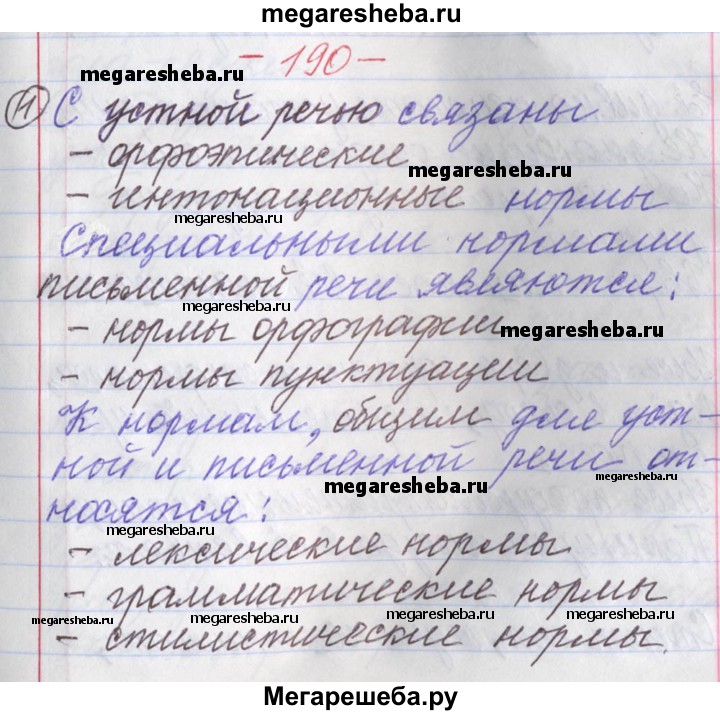 megaresheba.ru
- 190 -
megaresheba.ru
1 С устной речью связаны
- орфоэпические
megaresheba.ru
- интонационные нормы
megaresheba.ru
Специальными нормами
письменной речи являются:
megaresheba.ru
- нормы орфографии
megaresheba.ru
- нормы пунктуации
К нормам, общим для уст-
megaresheba.ru
ной и письменной речи от-
megaresheba.ru
носятся:
megaresheba.ru
- лексические нормы
- грамматические нормы
megaresheba.ru megaresheba.ru megaresheba.ru
- стилистические нормы.
megaresheba.ru
Мегарешеба.ру